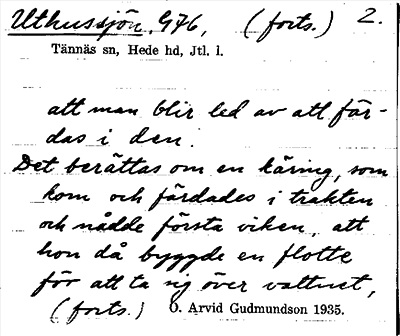 Uthussjön, 976, (forts.) 2.
Tännäs sn, Hede hd, Jtl. l.
att man blir led av att fär-
das i den.
Det berättas om en käring, som
kom och färdades i trakten
och nådde första viken, att
hon då byggde en flotte
för att ta sig över vattnet,
(forts.) O. Arvid Gudmundson 1935.